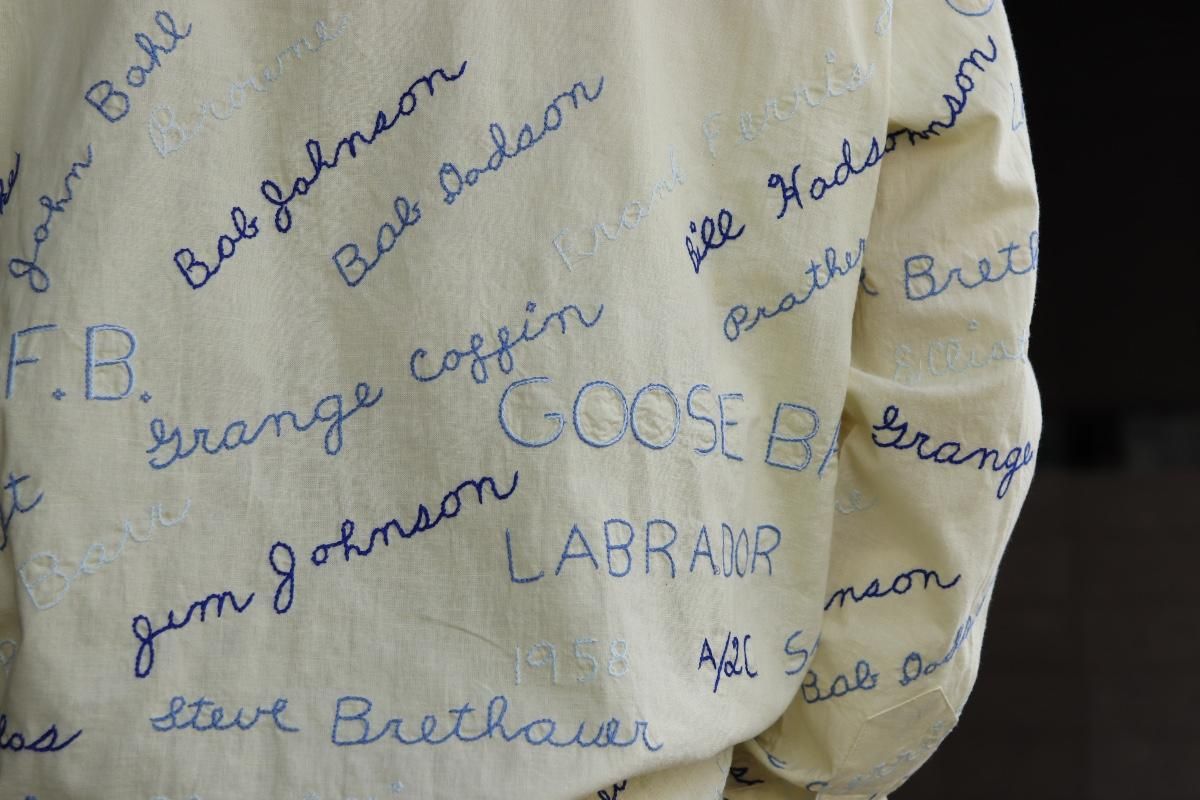 John Bahl
Browne
Bob Johnson
Bob Dodson
Frank Ferris
Bill Hadsonnson
Prather
Breth
Ellio
F.B.
Grange Coffin
GOOSE BA
Grange
Barr
Jim Johnson
LABRADOR
nson
1958
A/2C S
Bob Dod
Steve Brethauer